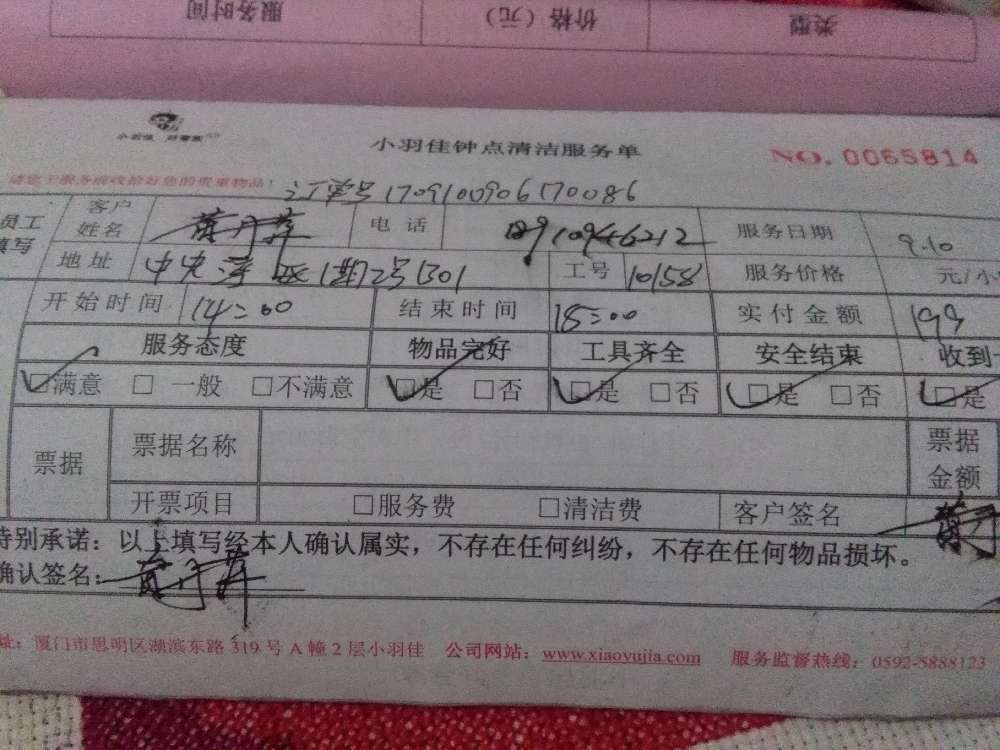 服务时间 价格(元) 类型
小羽佳 好管家
小羽佳钟点清洁服务单 NO. 0065814
请您于服务前收拾好您的贵重物品!
订单号170910090617 0086
员工填写 客户姓名 电话 服务日期 9.10
地址 中央 工号 10158 服务价格 元/小
开始时间 14:00 结束时间 18:00 实付金额 199
服务态度 物品完好 工具齐全 安全结束 收到
□满意 □一般 □不满意 □是 □否 □是 □否 □是 □否 □是
票据 票据名称 票据金额
开票项目 □服务费 □清洁费 客户签名
特别承诺:以上填写经本人确认属实,不存在任何纠纷,不存在任何物品损坏。
确认签名:
址:厦门市思明区湖滨东路319号A幢2层小羽佳 公司网站:www.xiaoyujia.com 服务监督热线:0592-5888123